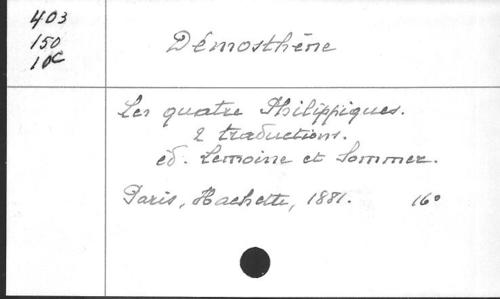 403
150
10C
Démosthène
Les quatre Philippiques.
2 traductions.
ed. Lemoine et Sommer.
Paris, Hachette, 1881. 16°